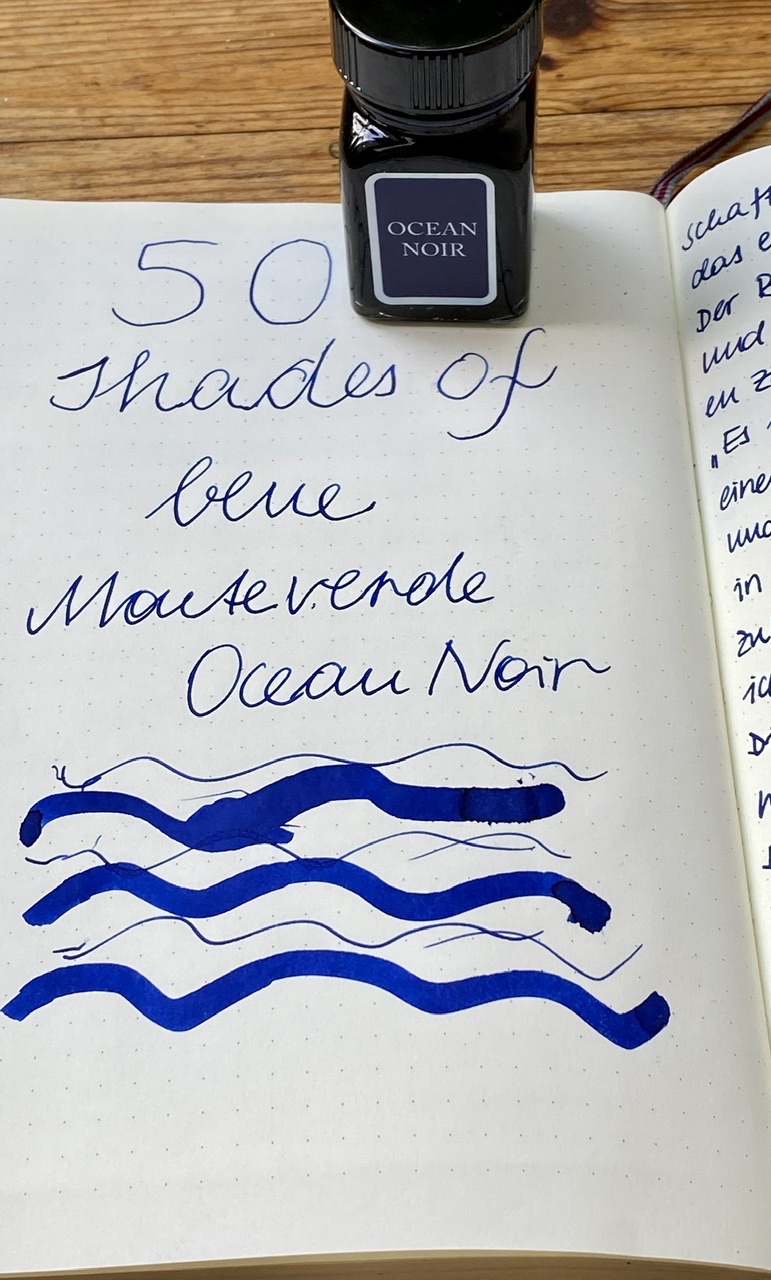 OCEAN
NOIR
50
Shades of
blue
Monteverde
Ocean Noir
schaft
das
Der
und
en
„Es
einer
und
in
zu